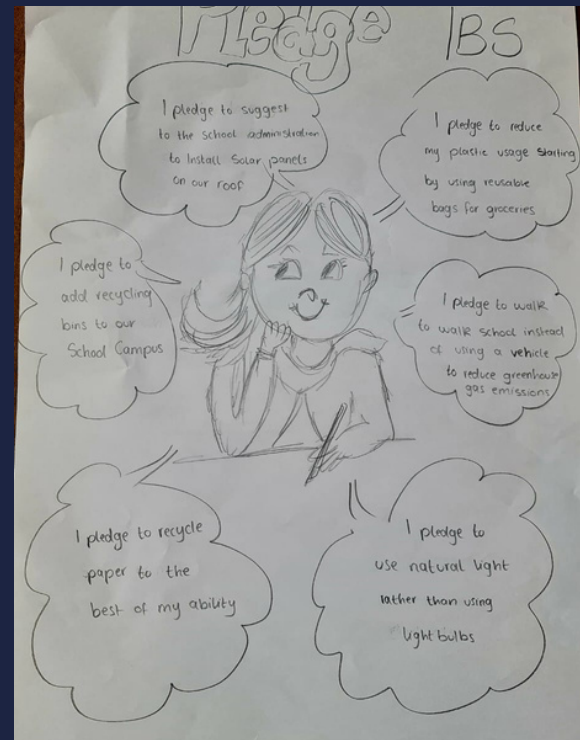 Pledge IBS
I pledge to suggest
to the school administration
to Install Solar panels
on our roof
I pledge to reduce
my plastic usage starting
by using reusable
bags for groceries
I pledge to
add recycling
bins to our
School Campus
I pledge to walk
to walk school instead
of using a vehicle
to reduce greenhouse
gas emissions
I pledge to recycle
paper to the
best of my ability
I pledge to
use natural light
rather than using
light bulbs